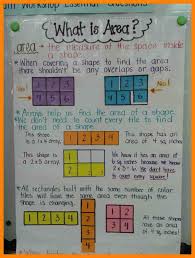 Workshop Essential Questions
What is Area?
area → the measure of the space inside
a shape.
• When covering a shape to find the area
there shouldn't be any overlaps or gaps.
Yes!
1 2 3
4 5 6
No!
• Arrays help us find the area of a shape.
We don't need to count every tile to find
the area of a shape.
This shape
is a
array.
1 2 3
4 5 6
7 8 9
This shape has
an area of
9 sq. inches
This shape
is a 2x3
array.
We know it has an
area of 6
sq. inches because
2 x 3 = 6. We
didn't have to count!
• All rectangles built with the same number of color
tiles will have the same area even though the
shape is changing.
1 2 3 4
1
2
3
4
1 2
3 4
All these shapes
have an area of
4 sq. inches!